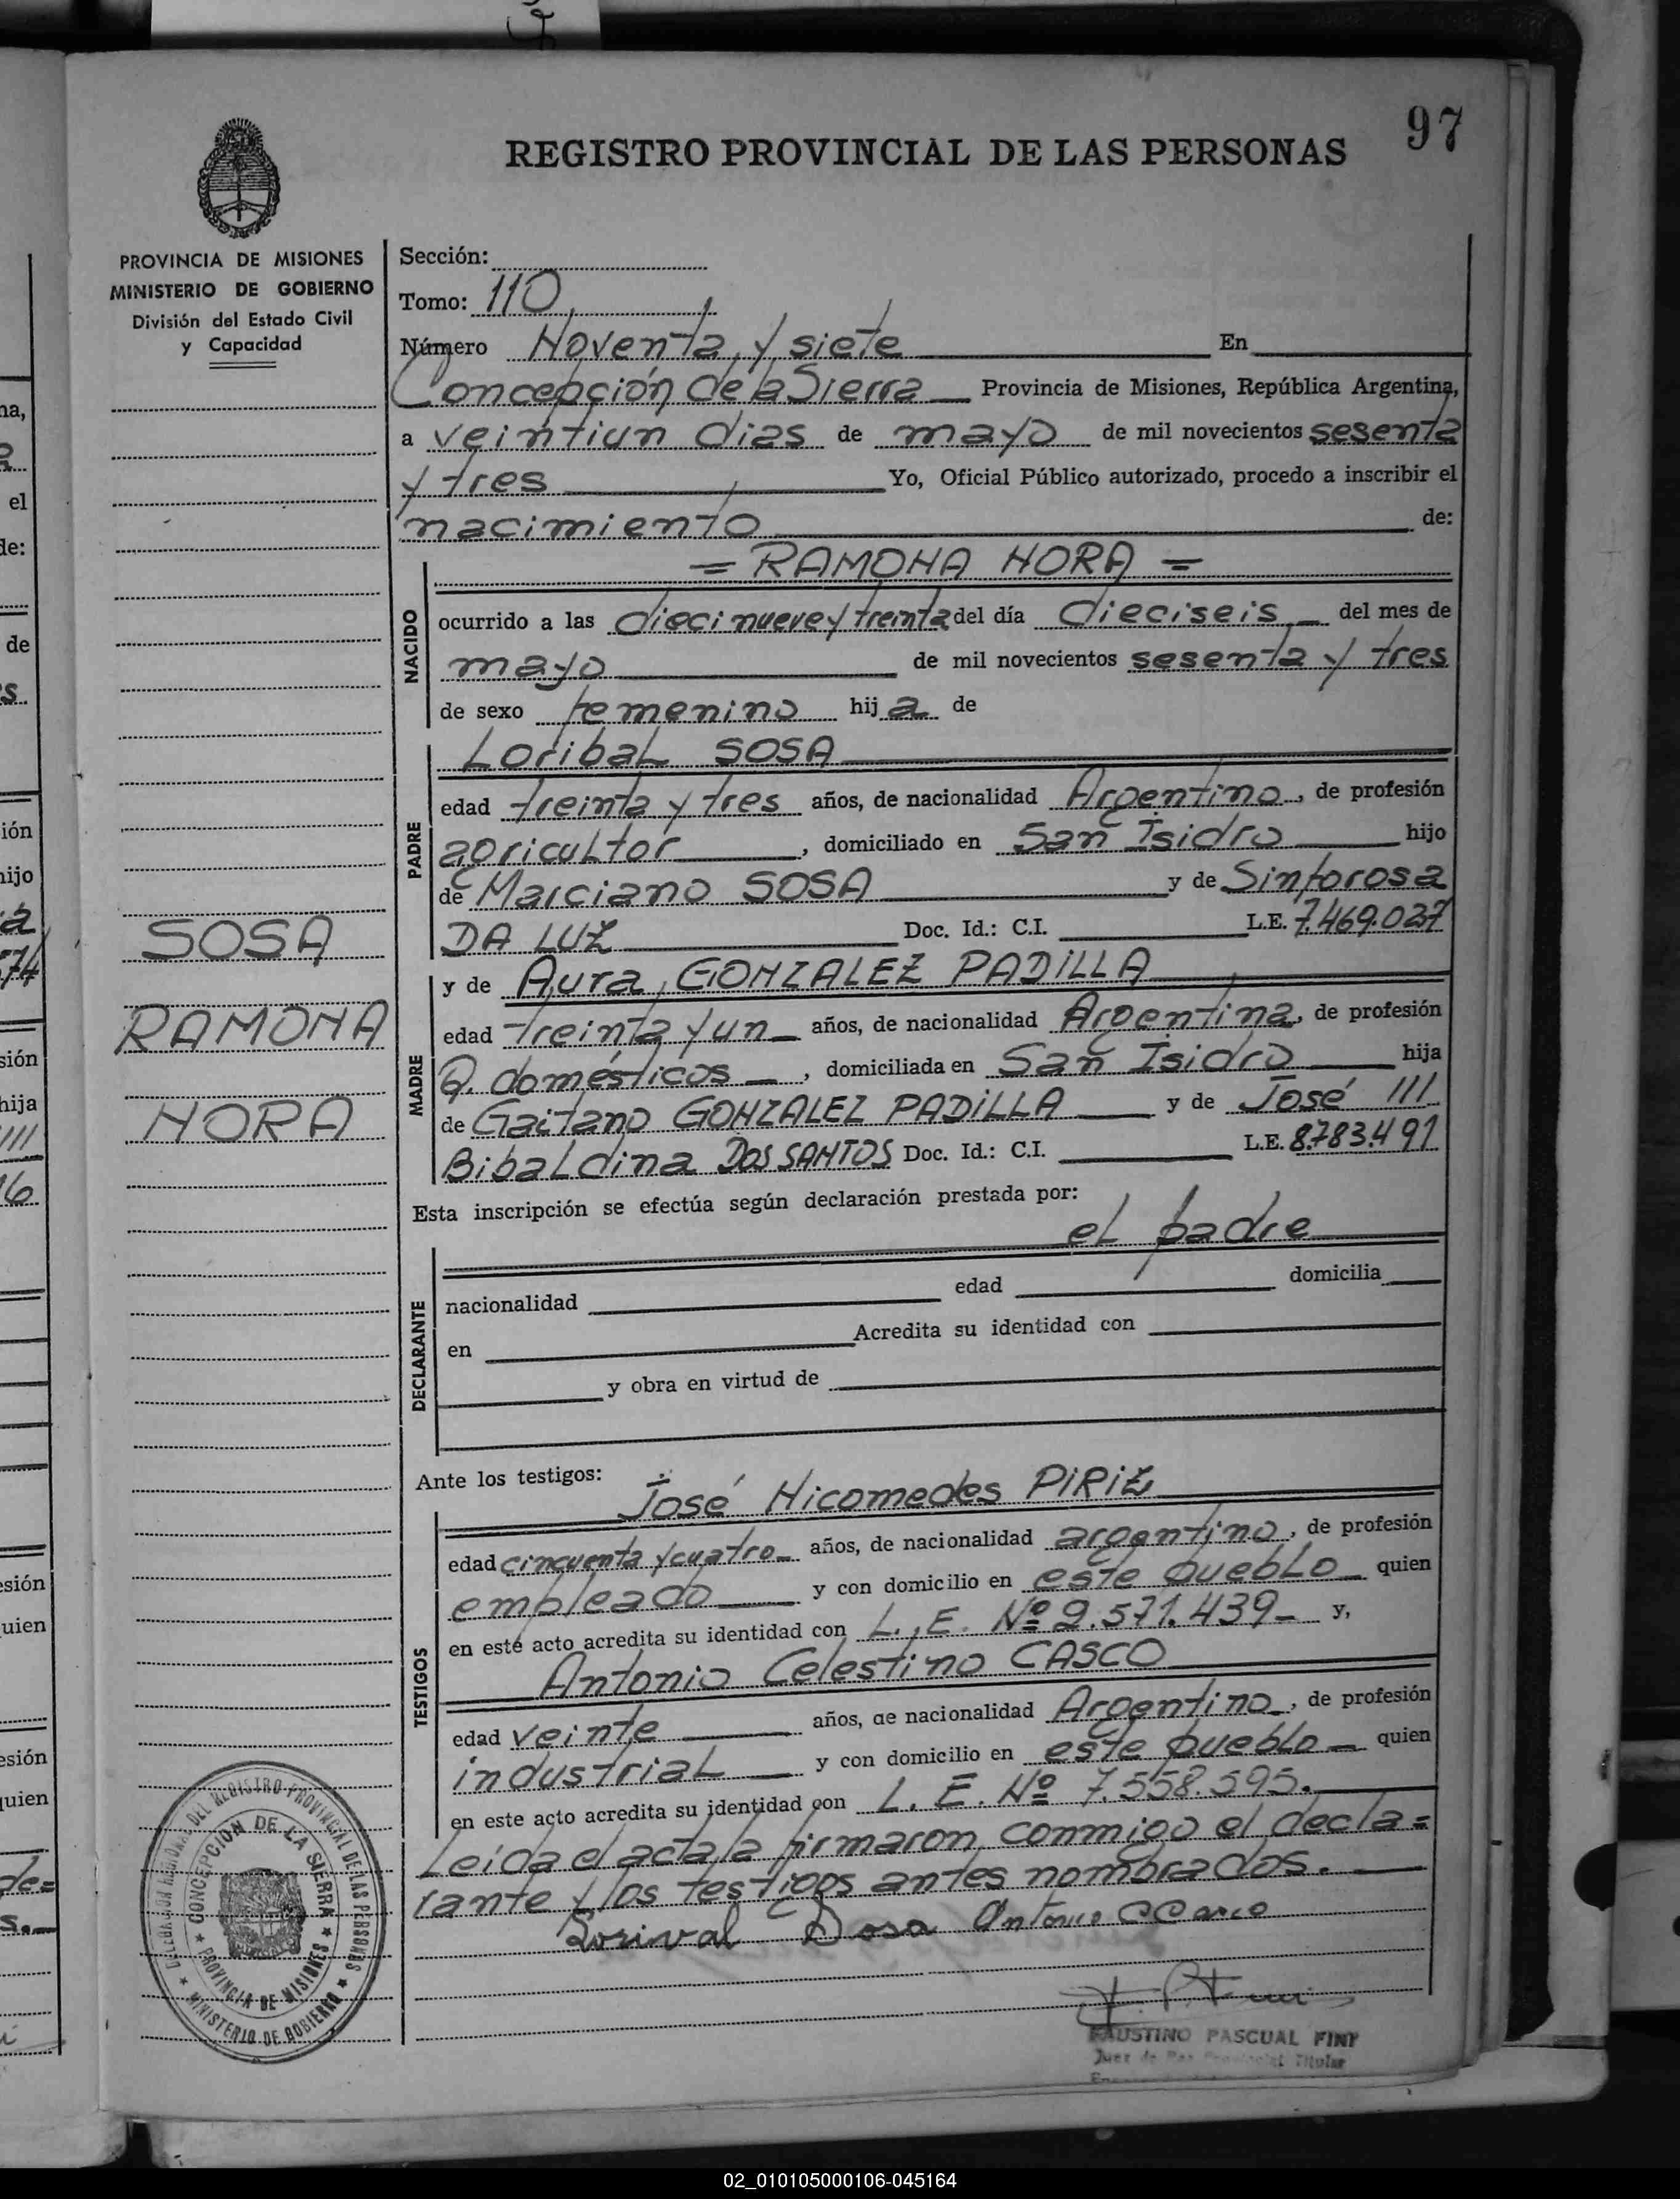 97
REGISTRO PROVINCIAL DE LAS PERSONAS
PROVINCIA DE MISIONES
MINISTERIO DE GOBIERNO
División del Estado Civil
y Capacidad
Sección:
Tomo: 110
Número Noventa y siete En
Concepción de la Sierra Provincia de Misiones, República Argentina,
a veintiun dias de mayo de mil novecientos sesenta
y tres Yo, Oficial Público autorizado, procedo a inscribir el
nacimiento de:
= RAMONA NORA =
NACIDO
ocurrido a las diecinueve y treinta del día dieciseis del mes de
mayo de mil novecientos sesenta y tres
de sexo femenino hija de
PADRE
Loribal SOSA
edad treinta y tres años, de nacionalidad Argentino, de profesión
agricultor, domiciliado en San Isidro hijo
de Marciano SOSA y de Sinforosa
DA LUZ Doc. Id.: C.I. L.E. 7.469.027
MADRE
y de Aura GONZALEZ PADILLA
edad treinta y un años, de nacionalidad Argentina, de profesión
Q. domésticos, domiciliada en San Isidro hija
de Gaitano GONZALEZ PADILLA y de José ///
Bibaldina DOS SANTOS Doc. Id.: C.I. L.E. 8.783.491
SOSA
RAMONA
NORA
Esta inscripción se efectúa según declaración prestada por:
el padre
DECLARANTE
nacionalidad edad domicilia
en Acredita su identidad con
y obra en virtud de
Ante los testigos:
José Nicomedes PIRIZ
TESTIGOS
edad cincuenta y cuatro años, de nacionalidad argentino, de profesión
empleado y con domicilio en este pueblo quien
en este acto acredita su identidad con L. E. Nº 2.571.439- y,
Antonio Celestino CASCO
edad veinte años, de nacionalidad Argentino, de profesión
industrial y con domicilio en este pueblo quien
en este acto acredita su identidad con L. E. Nº 7.558.595.
Leida el acta la firmaron conmigo el decla=
rante y los testigos antes nombrados.
Lorival Sosa Antonio C Casco
DELEGACION REGIONAL DEL REGISTRO PROVINCIAL DE LAS PERSONAS
CONCEPCION DE LA SIERRA
PROVINCIA DE MISIONES
MINISTERIO DE GOBIERNO
FAUSTINO PASCUAL FINI
Juez de Paz Titular
02_010105000106-045164